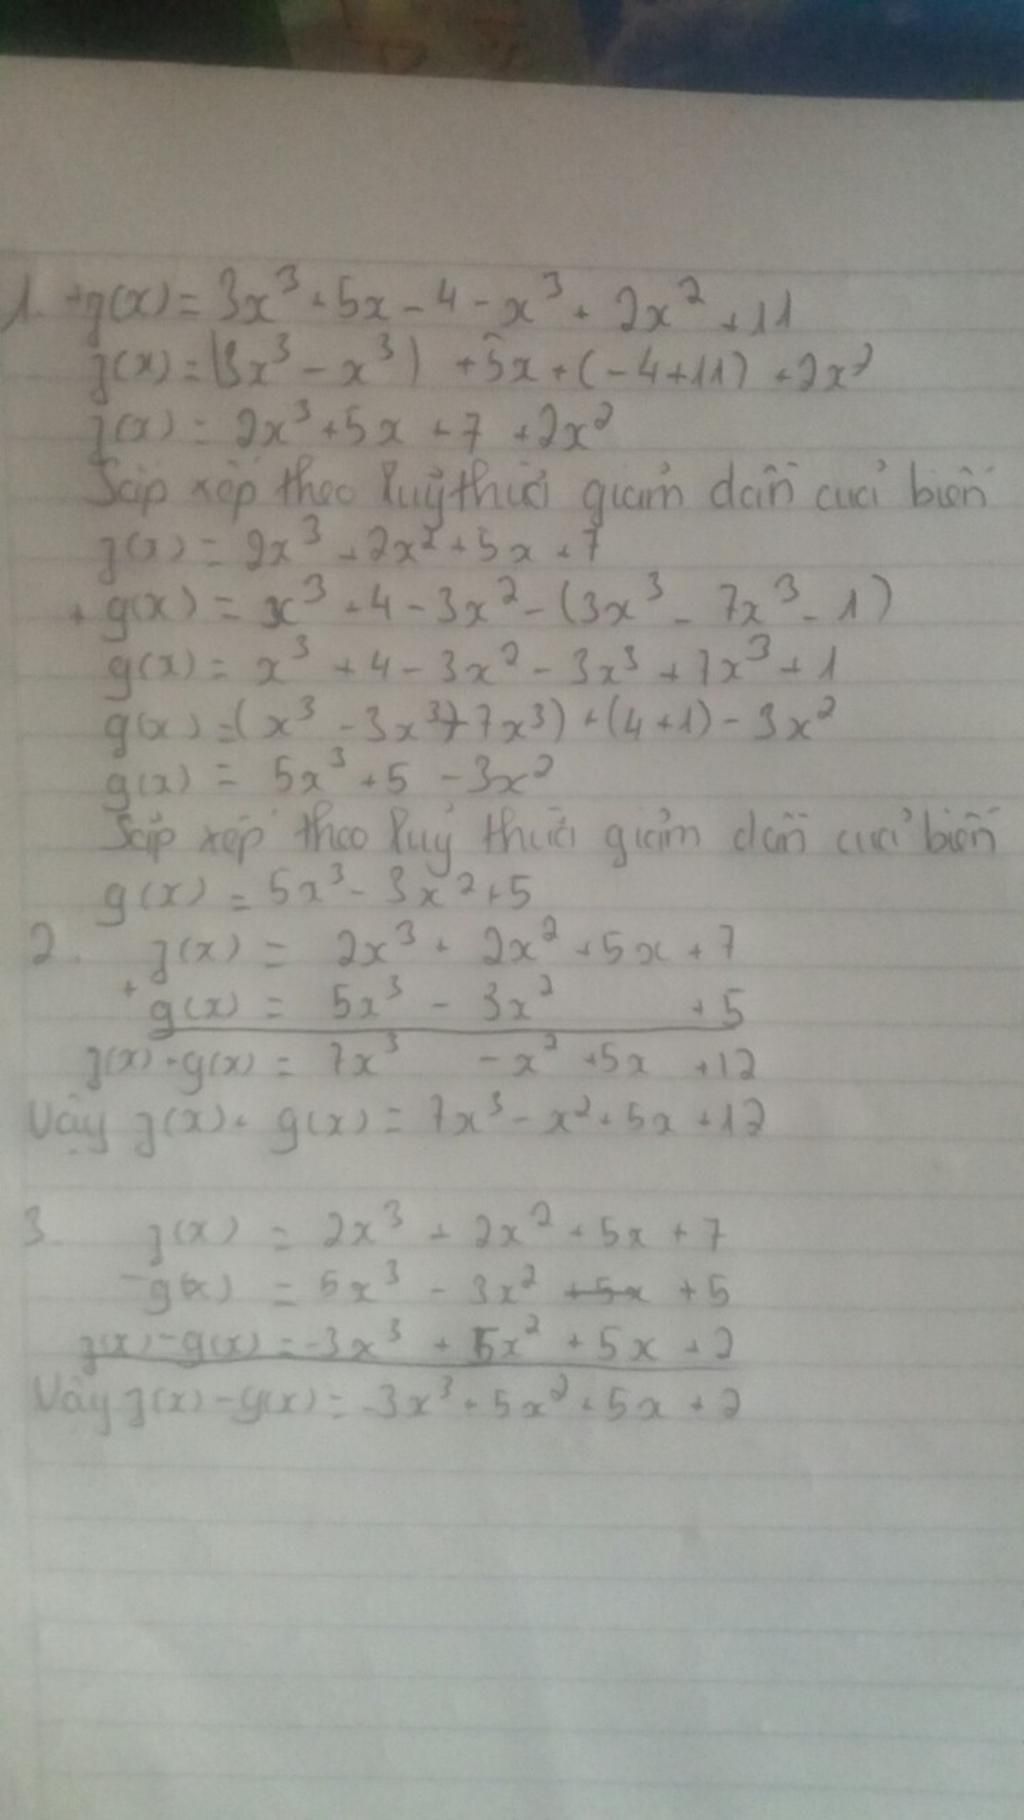 1. + f(x) = 3x³ + 5x - 4 - x³ + 2x² + 11
f(x) = (3x³ - x³) + 5x + (-4 + 11) + 2x²
f(x) = 2x³ + 5x + 7 + 2x²
Sắp xếp theo luỹ thừa giảm dần của biến
f(x) = 2x³ + 2x² + 5x + 7
+ g(x) = x³ + 4 - 3x² - (3x³ - 7x³ - 1)
g(x) = x³ + 4 - 3x² - 3x³ + 7x³ + 1
g(x) = (x³ - 3x³ + 7x³) + (4 + 1) - 3x²
g(x) = 5x³ + 5 - 3x²
Sắp xếp theo luỹ thừa giảm dần của biến
g(x) = 5x³ - 3x² + 5
2. f(x) = 2x³ + 2x² + 5x + 7
+ g(x) = 5x³ - 3x² + 5
f(x) + g(x) = 7x³ - x² + 5x + 12
Vậy f(x) + g(x) = 7x³ - x² + 5x + 12
3. f(x) = 2x³ + 2x² + 5x + 7
- g(x) = 5x³ - 3x² + 5x + 5
f(x) - g(x) = -3x³ + 5x² + 5x + 2
Vậy f(x) - g(x) = -3x³ + 5x² + 5x + 2